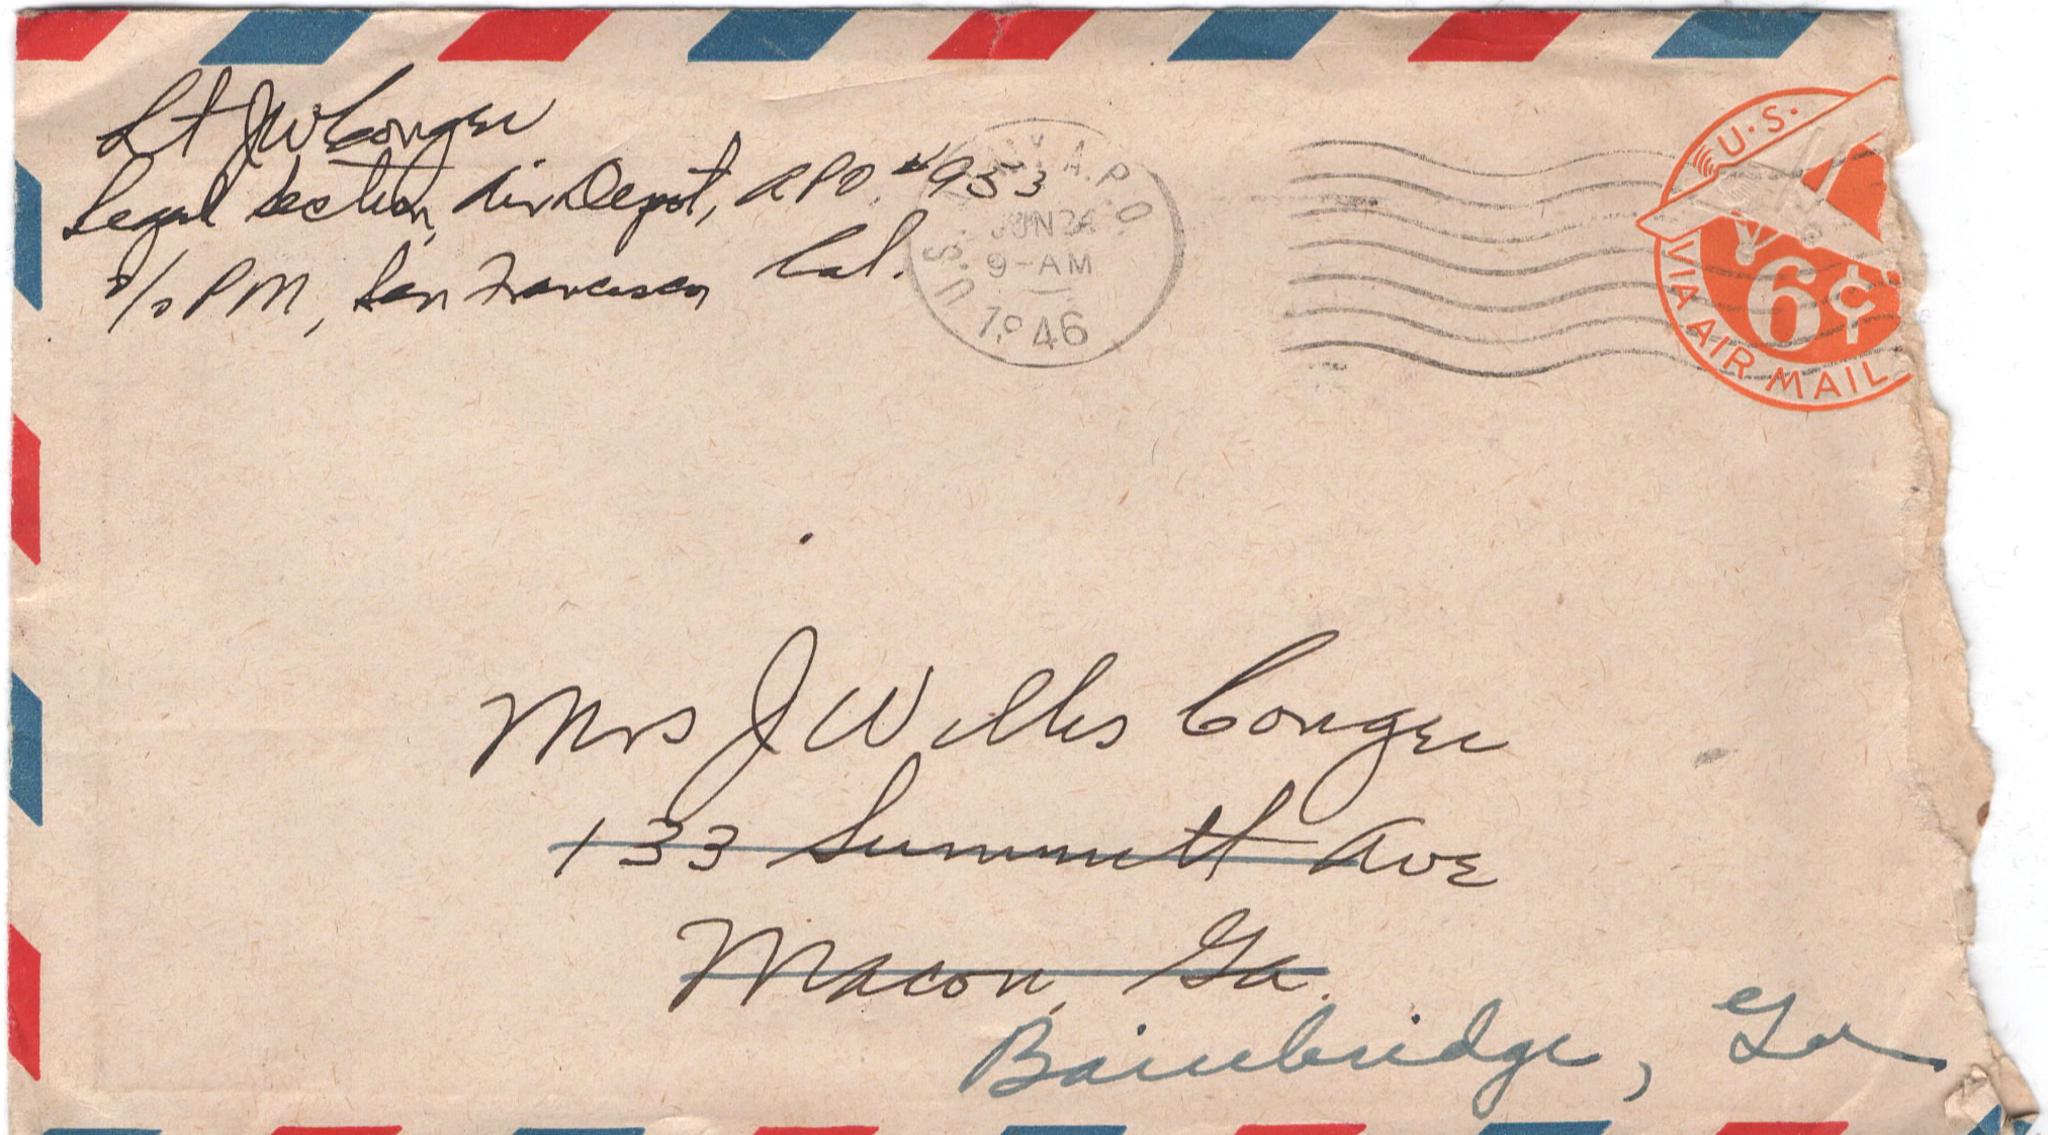 Lt JW Conger
Legal Section, Air Depot, APO #953
c/o PM, San Francisco Cal.
U.S. ARMY A.P.O.
JUN 24
9-AM
1946
U.S.
6¢
VIA AIR MAIL
Mrs J Willis Conger
133 Summitt Ave
Macon, Ga.
Bainbridge, Ga